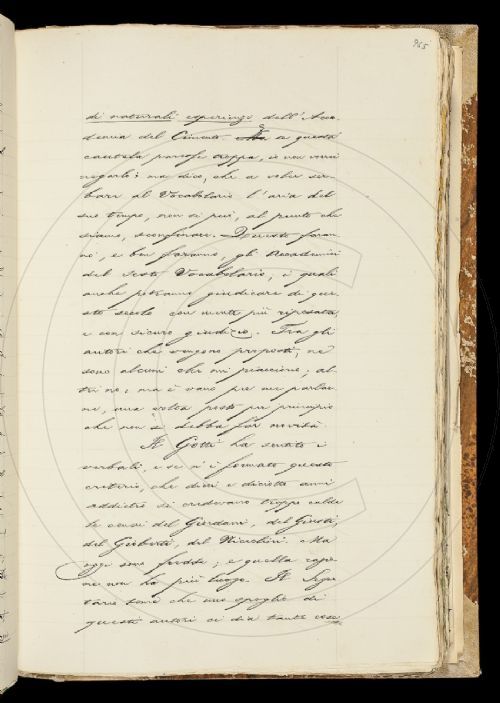 965
di naturali esperienze dell'Acca-
demia del Cimento. Ma se questa
cautela paresse troppa, io non vorrei
negarlo: ma dico, che a voler ser-
bare al Vocabolario l'aria del
suo tempo, non si può, al punto che
siamo, sconfinare. Questo faran-
no, e ben faranno, gli Accademici
del sesto Vocabolario, i quali
anche potranno giudicare di que-
sto secolo con mente più riposata
e con sicuro giudizio. Tra gli
autori che vengono proposti, ne
sono alcuni che mi piacciono, al-
tri no; ma è vano per me parlar-
ne, una volta posto per principio
che non si debba far novità.
Il Gotti ha sentito i
verbali, e se n'è formato questo
criterio, che dieci e diciotto anni
addietro si credevano troppo calde
le ceneri del Giordani, del Giusti,
del Gioberti, del Niccolini. Ma
oggi sono fredde; e quella ragio-
ne non ha più luogo. Il Segre-
tario teme che uno spoglio di
questi autori ci dia tante cose